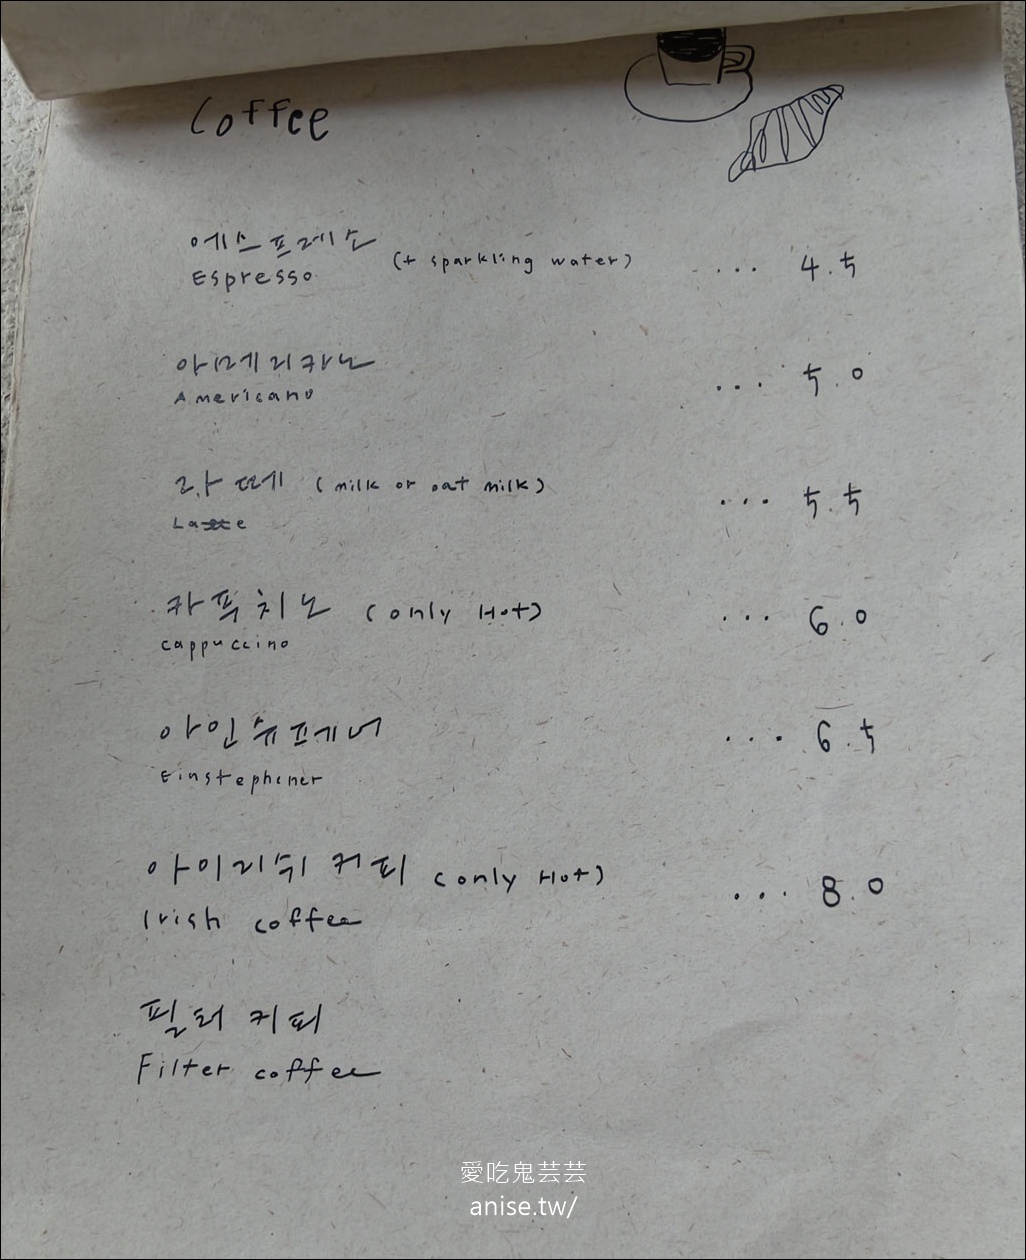 Coffee
에스프레소 (+ sparkling water) ... 4.5
Espresso
아메리카노 ... 5.0
Americano
라떼 (milk or oat milk) ... 5.5
Latte
카푸치노 (only Hot) ... 6.0
cappuccino
아인슈페너 ... 6.5
Einstephener
아이리쉬 커피 (only Hot) ... 8.0
Irish coffee
필터 커피
Filter coffee
愛吃鬼芸芸
anise.tw/